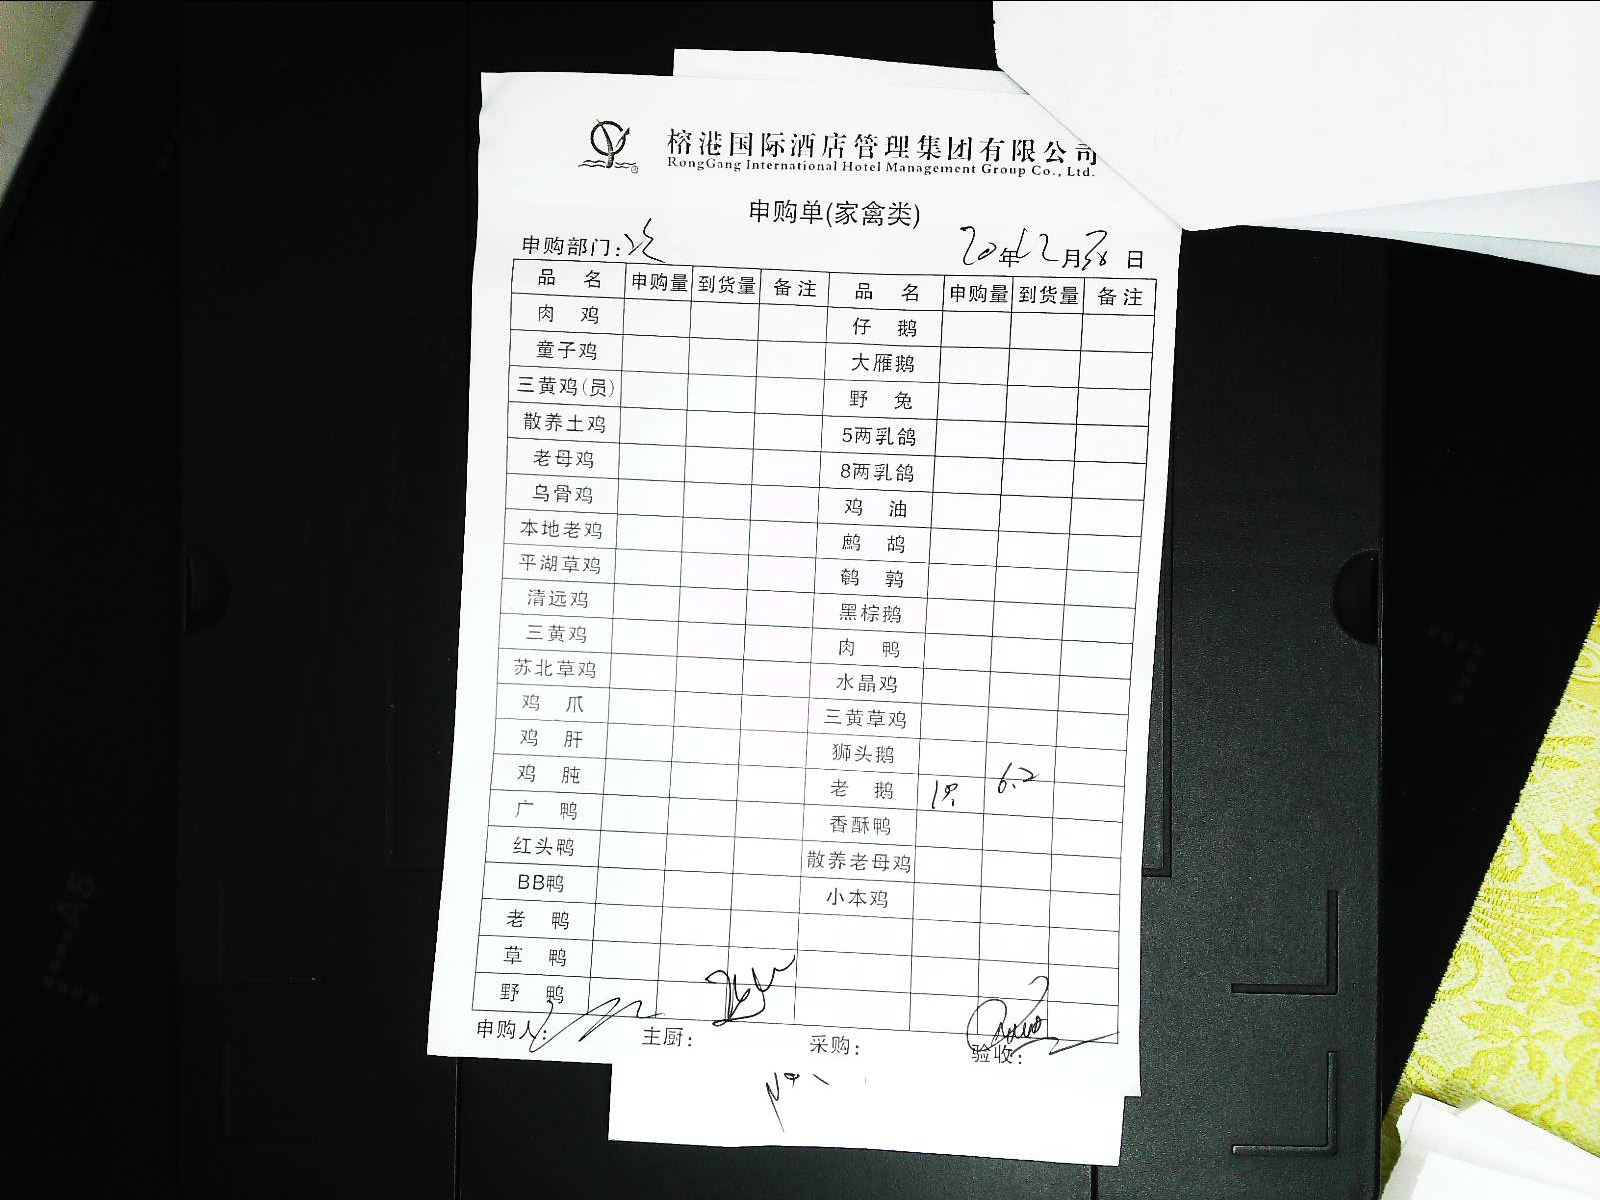 榕港国际酒店管理集团有限公司
RongGang International Hotel Management Group Co., Ltd.
申购单(家禽类)
申购部门: 20年12月30日
品 名 申购量 到货量 备注 品 名 申购量 到货量 备注
肉 鸡 仔 鹅
童子鸡 大雁鹅
三黄鸡(员) 野 兔
散养土鸡 5两乳鸽
老母鸡 8两乳鸽
乌骨鸡 鸡 油
本地老鸡 鹧 鸪
平湖草鸡 鹌 鹑
清远鸡 黑棕鹅
三黄鸡 肉 鸭
苏北草鸡 水晶鸡
鸡 爪 三黄草鸡
鸡 肝 狮头鹅
鸡 肫 老 鹅 1只 6.2
广 鸭 香酥鸭
红头鸭 散养老母鸡
BB鸭 小本鸡
老 鸭
草 鸭
野 鸭
申购人: 主厨: 采购: 验收: